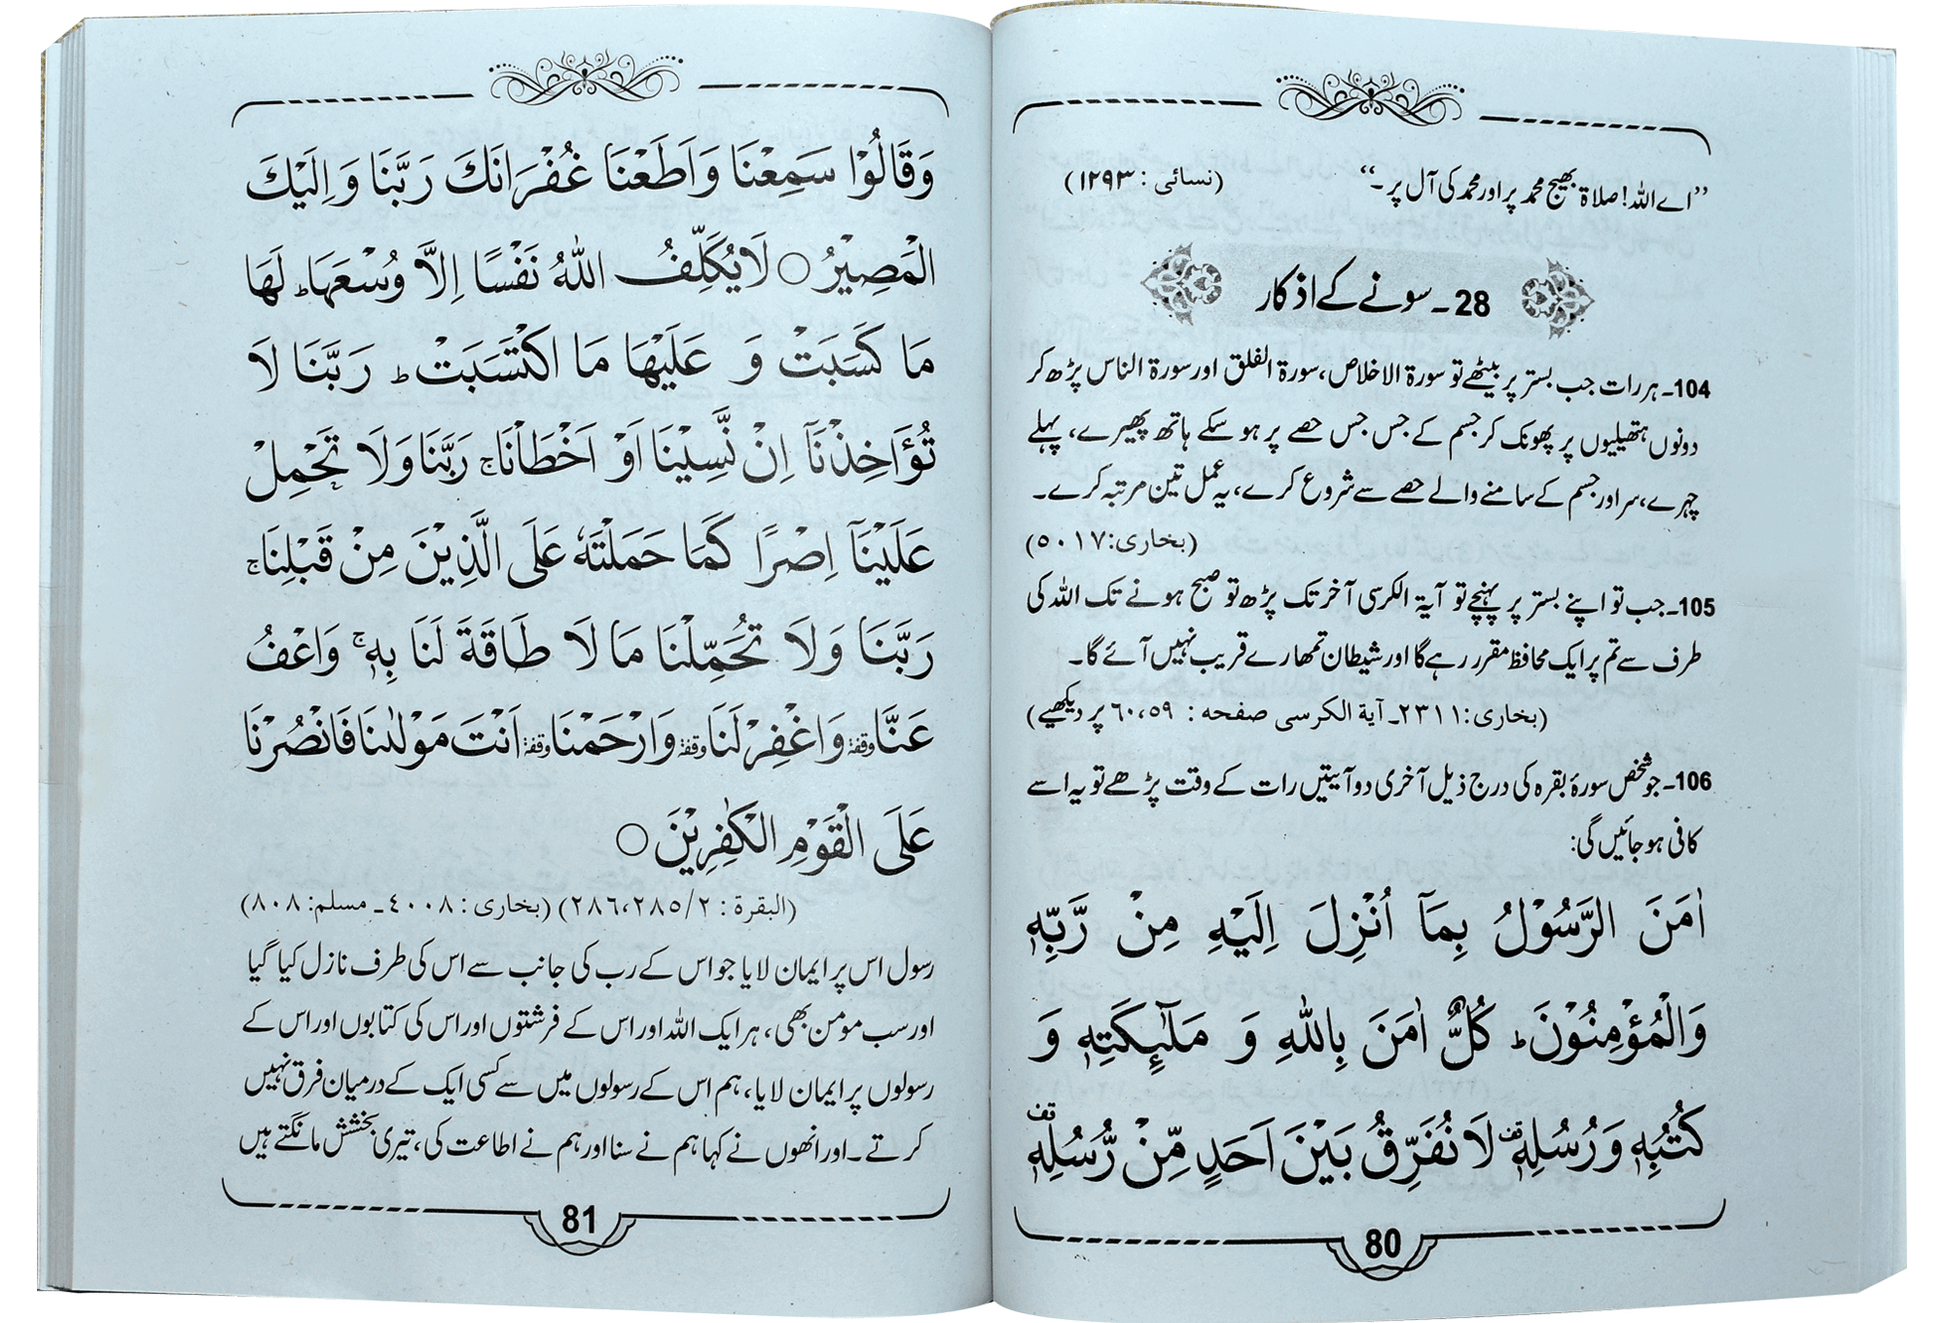 ”اے اللہ! صلاۃ بھیج محمد پر اور محمد کی آل پر۔“ (نسائی : ۱۲۹۳)
28۔ سونے کے اذکار
104۔ ہر رات جب بستر پر بیٹھے تو سورۃ الاخلاص، سورۃ الفلق اور سورۃ الناس پڑھ کر
دونوں ہتھیلیوں پر پھونک کر جسم کے جس جس حصے پر ہو سکے ہاتھ پھیرے، پہلے
چہرے، سر اور جسم کے سامنے والے حصے سے شروع کرے، یہ عمل تین مرتبہ کرے۔
(بخاری: ۵۰۱۷)
105۔ جب تو اپنے بستر پر پہنچے تو آیۃ الکرسی آخر تک پڑھ تو صبح ہونے تک اللہ کی
طرف سے تم پر ایک محافظ مقرر رہے گا اور شیطان تمھارے قریب نہیں آئے گا۔
(بخاری: ۲۳۱۱۔ آیة الکرسی صفحه : ۶۰،۵۹ پر دیکھیے)
106۔ جو شخص سورۂ بقرہ کی درج ذیل آخری دو آیتیں رات کے وقت پڑھے تو یہ اسے
کافی ہو جائیں گی:
اٰمَنَ الرَّسُوْلُ بِمَآ اُنْزِلَ اِلَيْهِ مِنْ رَّبِّهٖ
وَالْمُؤْمِنُوْنَ ؕ كُلٌّ اٰمَنَ بِاللّٰهِ وَ مَلٰٓئِكَتِهٖ وَ
كُتُبِهٖ وَرُسُلِهٖ قف لَا نُفَرِّقُ بَيْنَ اَحَدٍ مِّنْ رُّسُلِهٖ قف
80
وَقَالُوْا سَمِعْنَا وَاَطَعْنَا غُفْرَانَكَ رَبَّنَا وَاِلَيْكَ
الْمَصِيْرُ ○ لَا يُكَلِّفُ اللّٰهُ نَفْسًا اِلَّا وُسْعَهَا ؕ لَهَا
مَا كَسَبَتْ وَ عَلَيْهَا مَا اكْتَسَبَتْ ؕ رَبَّنَا لَا
تُؤَاخِذْنَآ اِنْ نَّسِيْنَا اَوْ اَخْطَاْنَا ۚ رَبَّنَا وَلَا تَحْمِلْ
عَلَيْنَآ اِصْرًا كَمَا حَمَلْتَهٗ عَلَى الَّذِيْنَ مِنْ قَبْلِنَا ۚ
رَبَّنَا وَلَا تُحَمِّلْنَا مَا لَا طَاقَةَ لَنَا بِهٖ ۚ وَاعْفُ
عَنَّا وقفة وَاغْفِرْ لَنَا وقفة وَارْحَمْنَا وقفة اَنْتَ مَوْلٰىنَا فَانْصُرْنَا
عَلَى الْقَوْمِ الْكٰفِرِيْنَ ○
(البقرة : ۲/ ۲۸۶،۲۸۵) (بخاری : ۴۰۰۸ ـ مسلم: ۸۰۸)
رسول اس پر ایمان لایا جو اس کے رب کی جانب سے اس کی طرف نازل کیا گیا
اور سب مومن بھی، ہر ایک اللہ اور اس کے فرشتوں اور اس کی کتابوں اور اس کے
رسولوں پر ایمان لایا، ہم اس کے رسولوں میں سے کسی ایک کے درمیان فرق نہیں
کرتے۔ اور انھوں نے کہا ہم نے سنا اور ہم نے اطاعت کی، تیری بخشش مانگتے ہیں
81